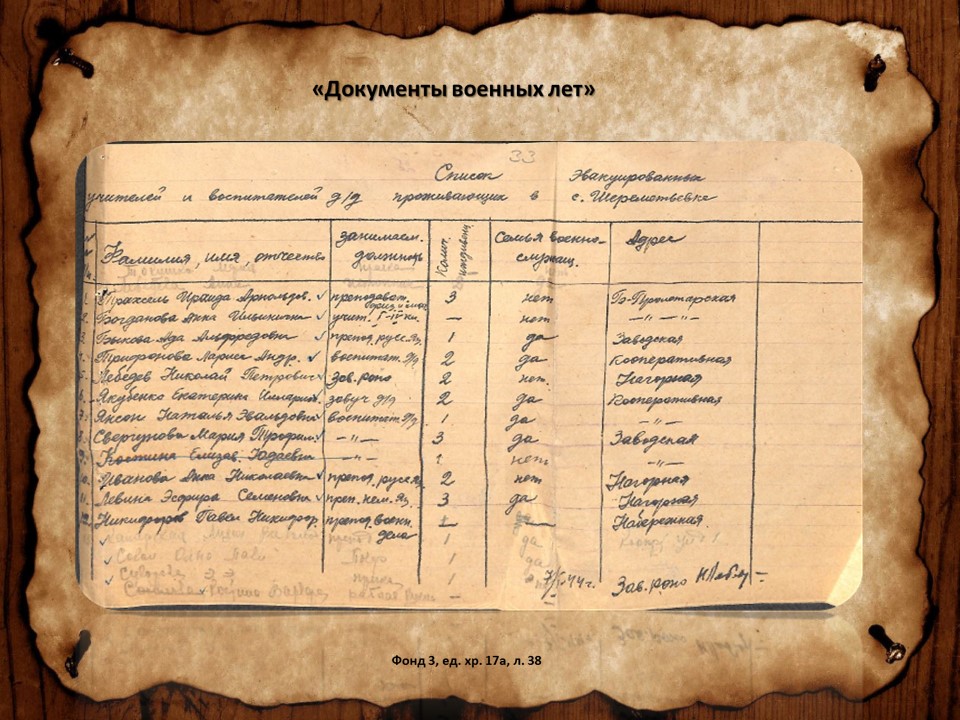 «Документы военных лет»
33
Список эвакуированных
учителей и воспитателей д/д проживающих в с. Шереметьевке
Фамилия, имя, отчество занимаем. должность Колич. иждивенц. Семья военно-служащ. Адрес
1. Ираида Арнольдов. преподават. 3 нет Пролетарская
2. Богданова Анна учит. I-IV кл. — нет —"—"—
3. Быкова Ада Альфредовна препод. русс. яз. 1 да Заводская
4. Трифонова Мария Андр. воспитат. д/д 2 да Кооперативная
5. Лебедев Николай Петрович Зав. роно 2 нет. Нагорная
6. Якубенко Екатерина завуч. д/д 2 да Кооперативная
7. Янсон Наталья Эвальдовн воспитат. д/д 1 да —"—
8. Свергунова Мария Трофим. —"— 3 да Заводская
9. Костина Елизав. —"— 1 нет —"—
10. Иванова Анна Николаевна препод. русс. яз. 2 нет Нагорная
11. Левина Эсфира Семеновна преп. нем. яз. 3 да Нагорная
12. Никифоров Павел Никифор. препод. военн. дела — Набережная.
1 да
1 да
1
44 г. Зав. роно
Фонд 3, ед. хр. 17а, л. 38